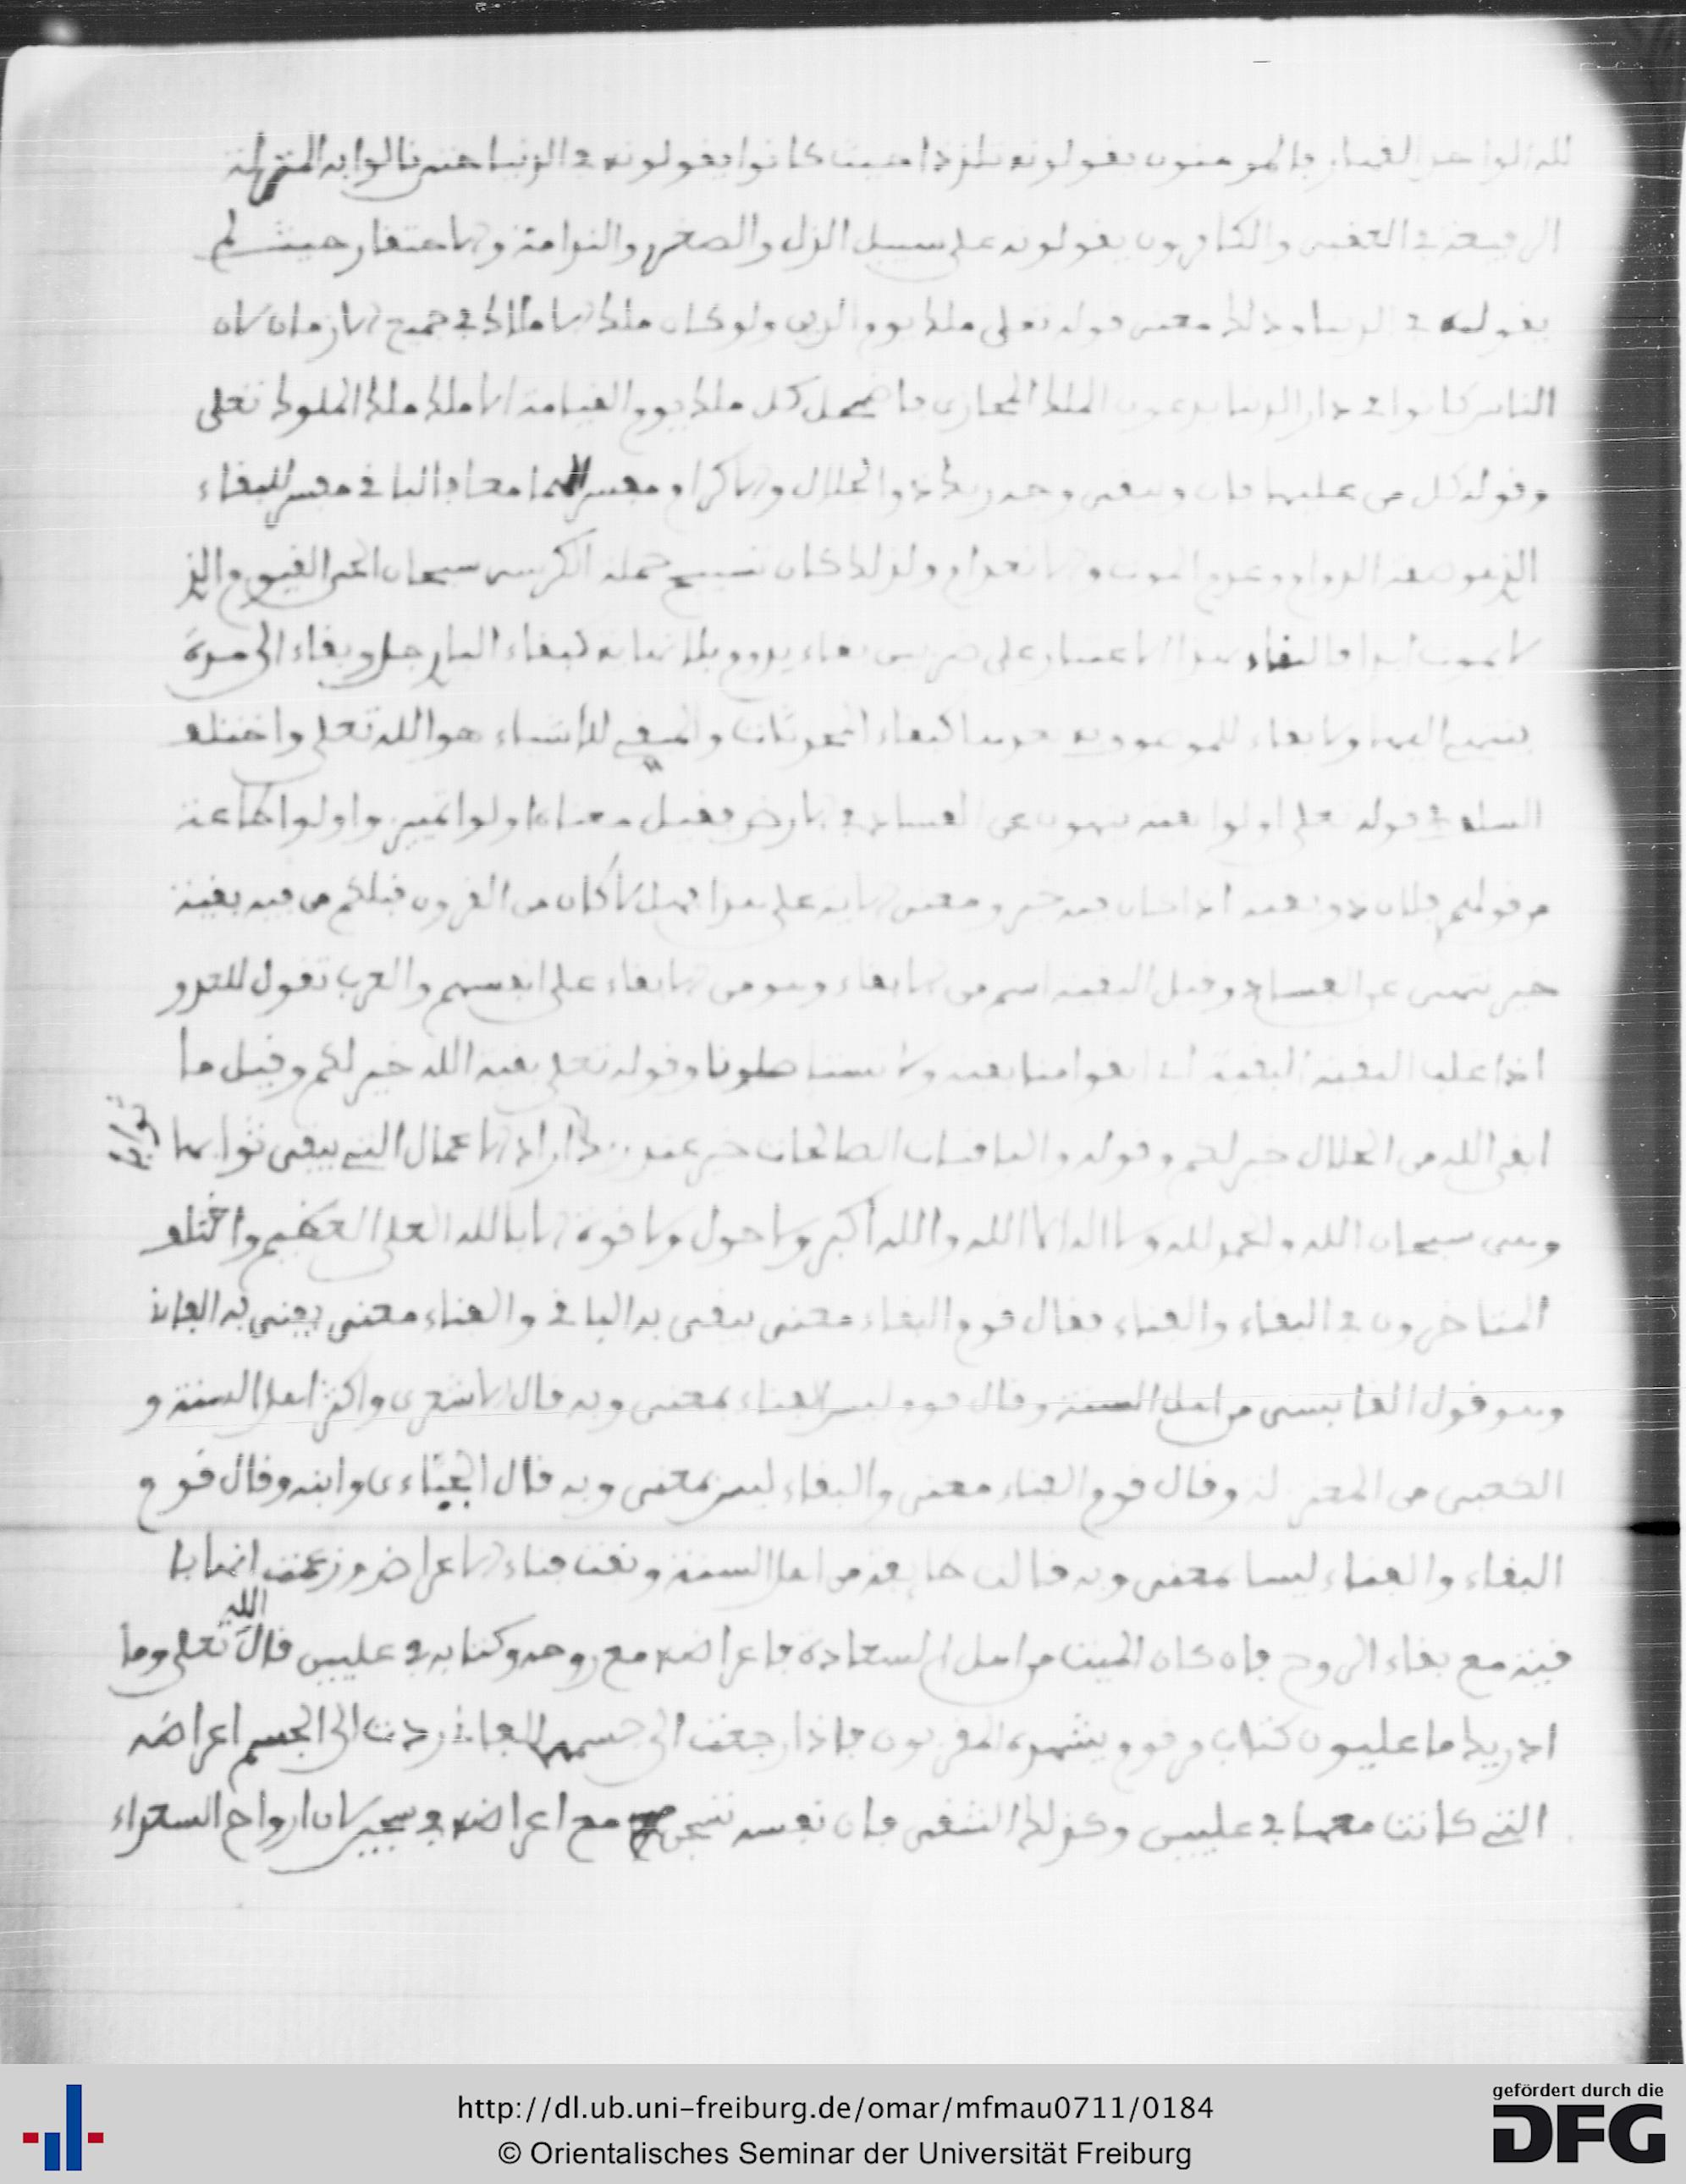 لله الواحد القهار فالمومنون يقولونه تلذذا حيث كانوا يقولونه في الدنيا حتى نالوا به المنزلة
الرفيعة في العقبى والكافرون يقولونه على سبيل الذل والصغار والندامة والاحتقار حيث لم
يقولوه في الدنيا وذلك معنى قوله تعلى ملك يوم الدين ولو كان ملك الاملاك في جميع الازمان لان
الناس كانوا في دار الدنيا يدعون الملك المجازى فاضمحل كل ملك يوم القيامة الا ملك ملك الملوك تعلى
وقوله كل من عليها فان ويبقى وجه ربك ذو الجلال والاكرام مفسر لهما معا فالباقي مفسر للبقاء
الذي هو صفة الدوام وعدم الموت والانعدام ولذلك كان تسبيح حملة الكرسى سبحان الحى القيوم الذي
لا يموت ابدا فالبقاء بهذا الاعتبار على ضربين بقاء يدوم بلا نهاية كبقاء الباري جل وبقاء الى مدة
ينتهي اليها ولا بقاء للموجود به بعدها كبقاء المحدثات والمبقي للاشياء هو الله تعلى واختلف
السلف في قوله تعلى اولوا بقية ينهون عن الفساد في الارض فقيل معناه اولوا تمييز واولوا طاعة
من قولهم فلان ذو بقية اذا كان فيه خير ومعنى الاية على هذا فهل لا كان من القرون قبلكم من فيه بقية
خير تنهى عن الفساد وقيل البقية اسم من الابقاء وهو من الابقاء على انفسهم والعرب تقول للعدو
اذا غلب البقية البقية اى ابقوا منا بقية ولا تستاصلونا وقوله تعلى بقية الله خير لكم وقيل ما
ابقى الله من الحلال خير لكم وقوله والباقيات الصالحات خير عند ربك اراد الاعمال التي يبقى ثوابها
ثوابها
وهى سبحان الله والحمد لله ولا اله الا الله والله اكبر ولا حول ولا قوة الا بالله العلى العظيم واختلف
المتاخرون في البقاء والفناء فقال قوم البقاء معنى يبقى به الباقي والفناء معنى يفنى به الفاني
وهو قول القابسى من اهل السنة وقال قوم ليس الفناء بمعنى وبه قال الاشعرى واكثر اهل السنة و
الكعبى من المعتزلة وقال قوم الفناء معنى والبقاء ليس بمعنى وبه قال الجبّاءى وابنه وقال قوم
البقاء والفناء ليسا بمعنى وبه قالت طايفة من اهل السنة ونفت فناء الاعراض وزعمت انها با
قية مع بقاء الروح فان كان الميت من اهل السعادة فاعراضه مع روحه وكتابه في عليين قال الله تعلى وما
ادريك ما عليون كتاب مرقوم يشهده المقربون فاذا رجعت الى جسمها الفاني ردت الى الجسم اعراضه
التي كانت معها في عليين وكذلك الشقى فان نفسه تسجن مع اعراضه في سجين لان ارواح السعداء
http://dl.ub.uni-freiburg.de/omar/mfmau0711/0184
© Orientalisches Seminar der Universität Freiburg
gefördert durch die
DFG